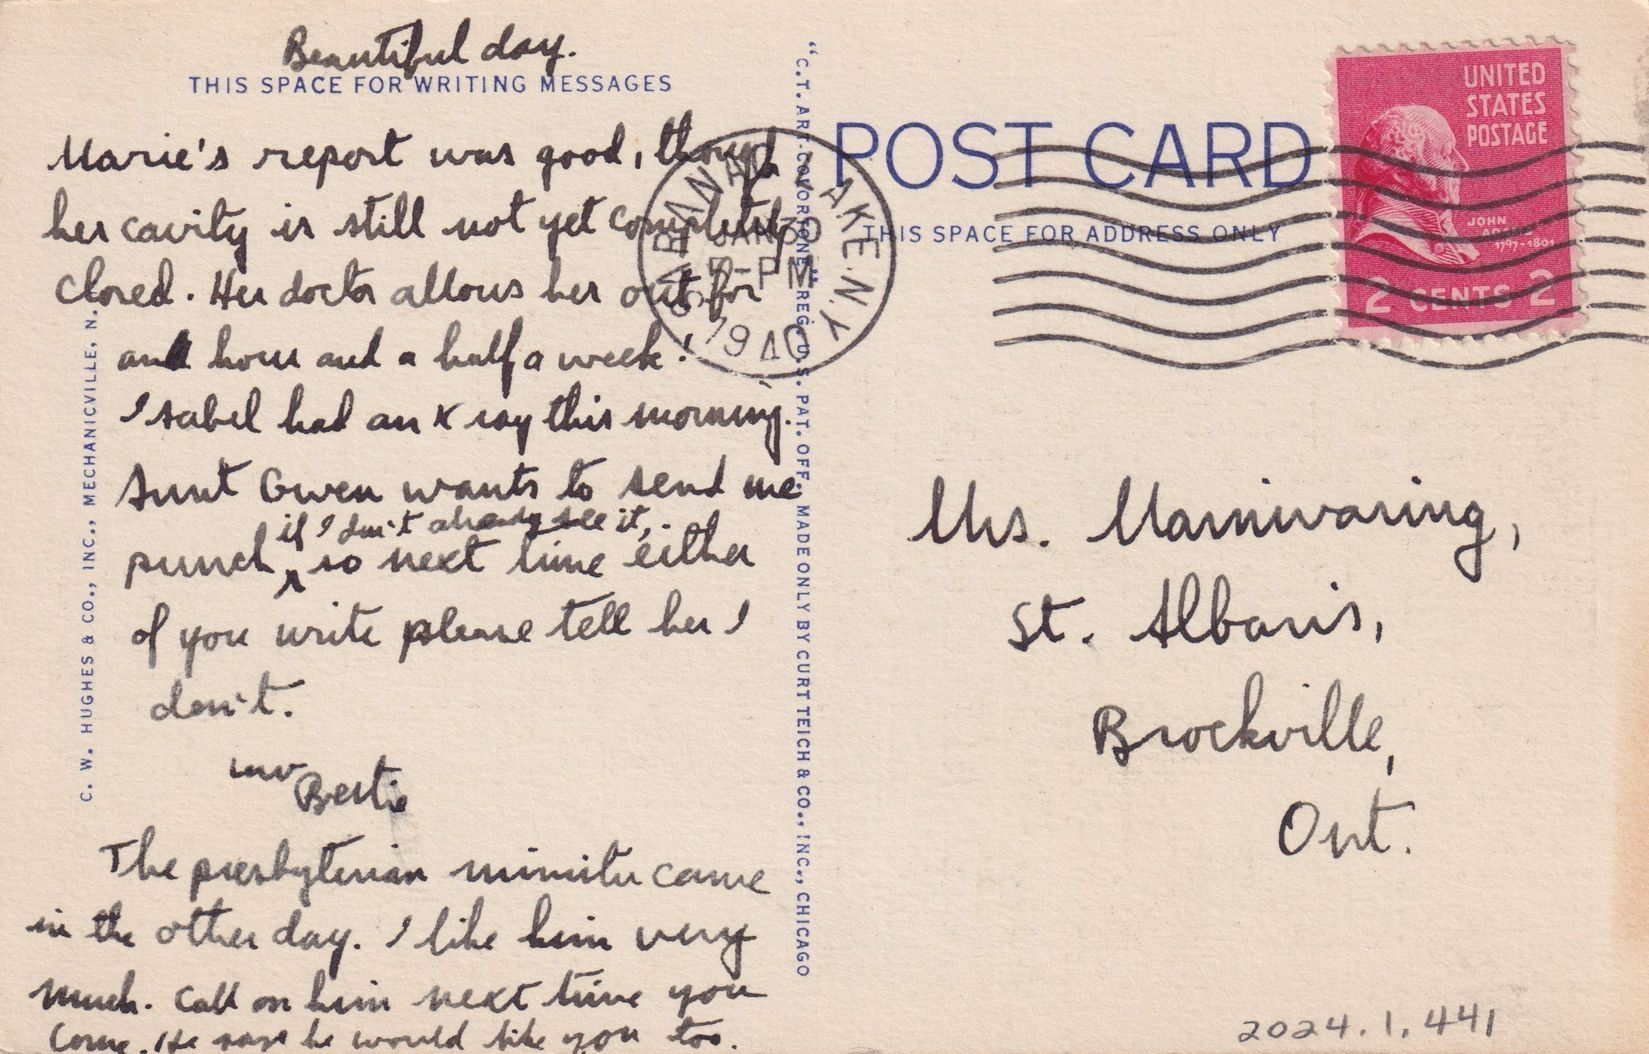 Beautiful day.
THIS SPACE FOR WRITING MESSAGES
Marie's report was good, though
her cavity is still not yet completely
closed. Her doctor allows her out for
an hour and a half a week!
Isabel had an X ray this morning.
Aunt Gwen wants to send me
if I don't already see it,
punch ^ so next time either
of you write please tell her I
don't.
Bertie
The presbyterian minister came
in the other day. I like him very
much. Call on him next time you
come. He says he would like you too.
C. W. HUGHES & CO., INC., MECHANICVILLE, N.
"C.T. ART-COLORTONE" REG. U.S. PAT. OFF. MADE ONLY BY CURT TEICH & CO., INC., CHICAGO
POST CARD
THIS SPACE FOR ADDRESS ONLY
SARANAC LAKE. N.Y.
JAN 30
7-PM
1940
UNITED
STATES
POSTAGE
JOHN
ADAMS
1797-1801
2 CENTS 2
Mrs. Mainwaring,
St. Alban's,
Brockville,
Ont.
2024.1.441